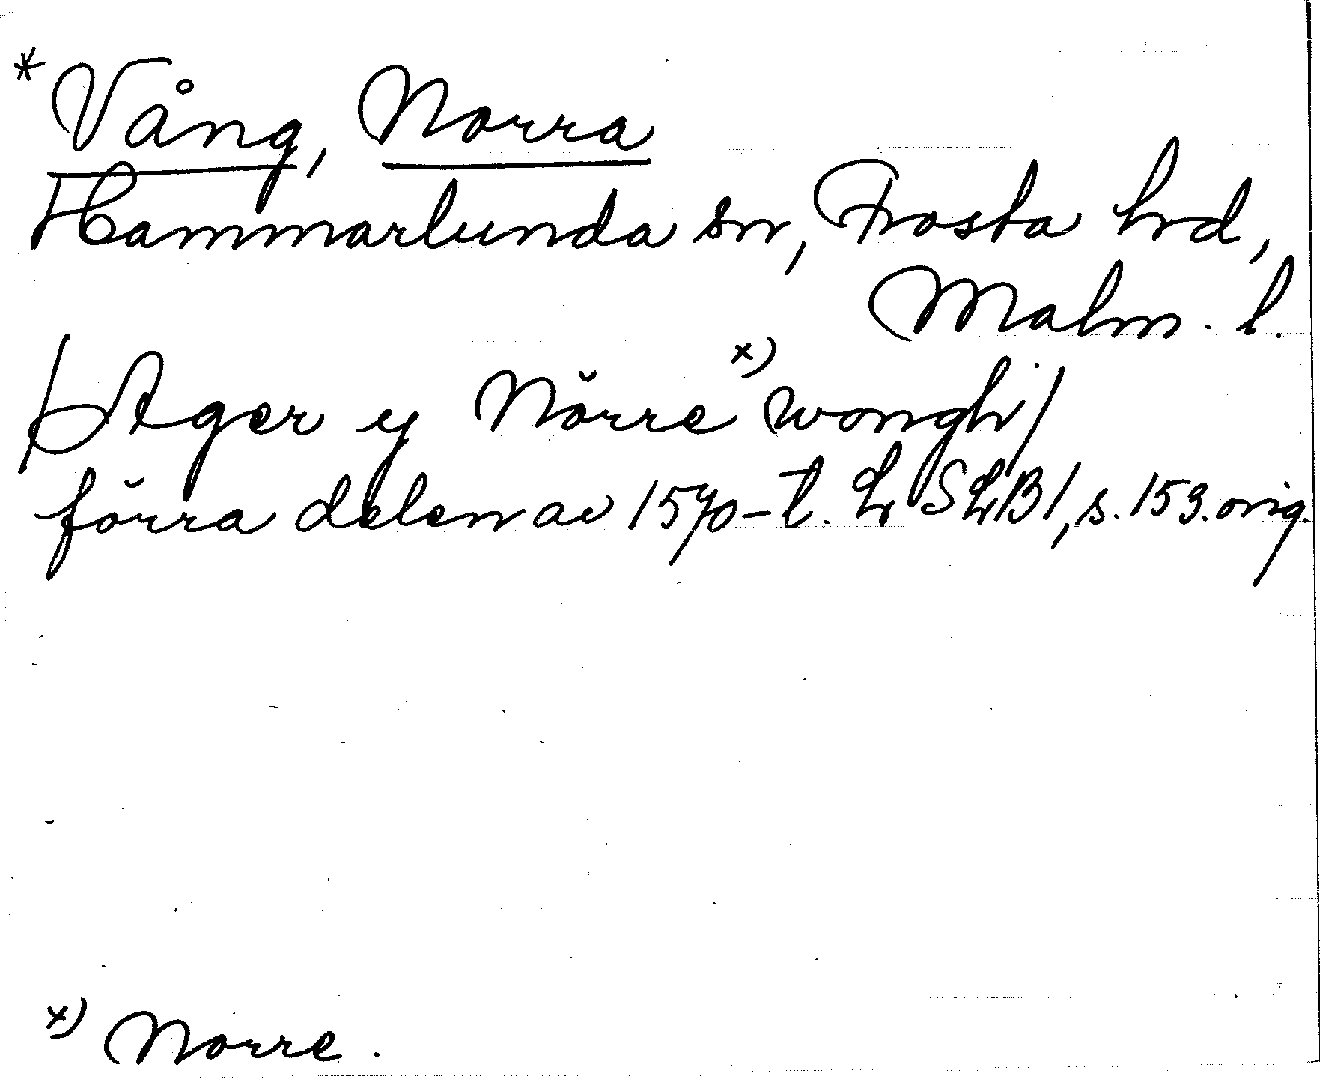 * Vång, Norra
Hammarlunda sn, Frosta hrd,
Malm. l.
/Ager y Nŏrre x) wongh/
förra delen av 1570-t. Lr SLB1, s. 153. orig.
x) Norre.